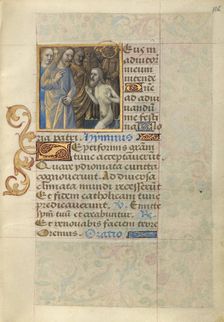 Eus in
adiutor
meum
intende
ne ad
adiuvandū
me festi
na
ria patri. hymnus
Septiformis gratiam
tunc acceptaverūt
Quare ydiomata cuncta
cognoverunt. Ad diversa
climata mundi recesserūt
Et fidem catholicam tunc
predicaverunt. V. Emitte
spm̄ tuū et creabuntur. R.
Et renovabis faciem terre
Oremus. Oratio